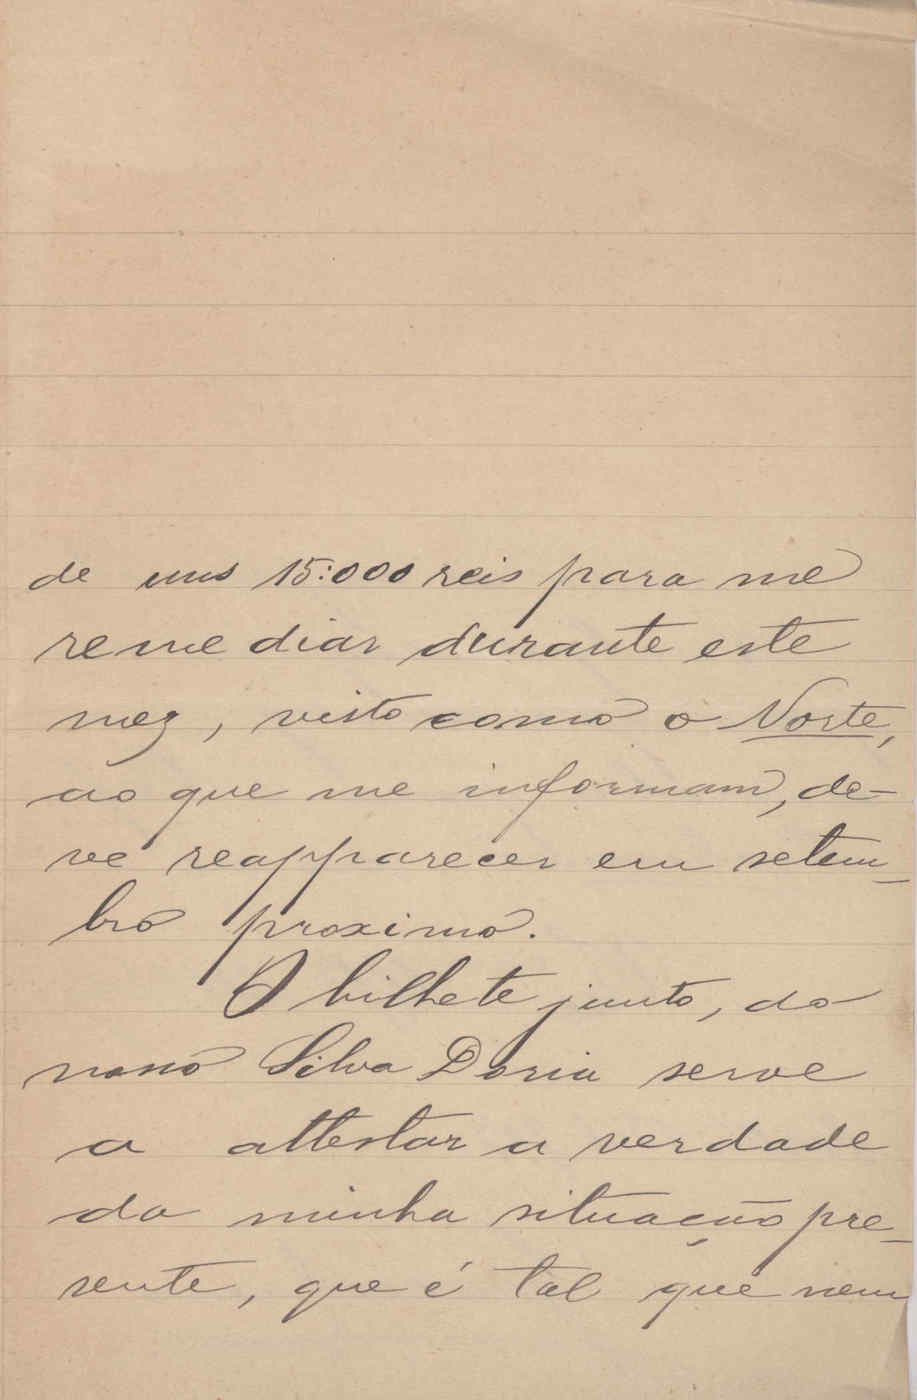 de uns 15:000 reis para me
remediar durante este
mez, visto como o Norte,
ao que me informam, de-
ve reapparecer em setem-
bro proximo.
O bilhete junto, do
nosso Silva Doria serve
a attestar a verdade
da minha situação pre-
sente, que é tal que nem